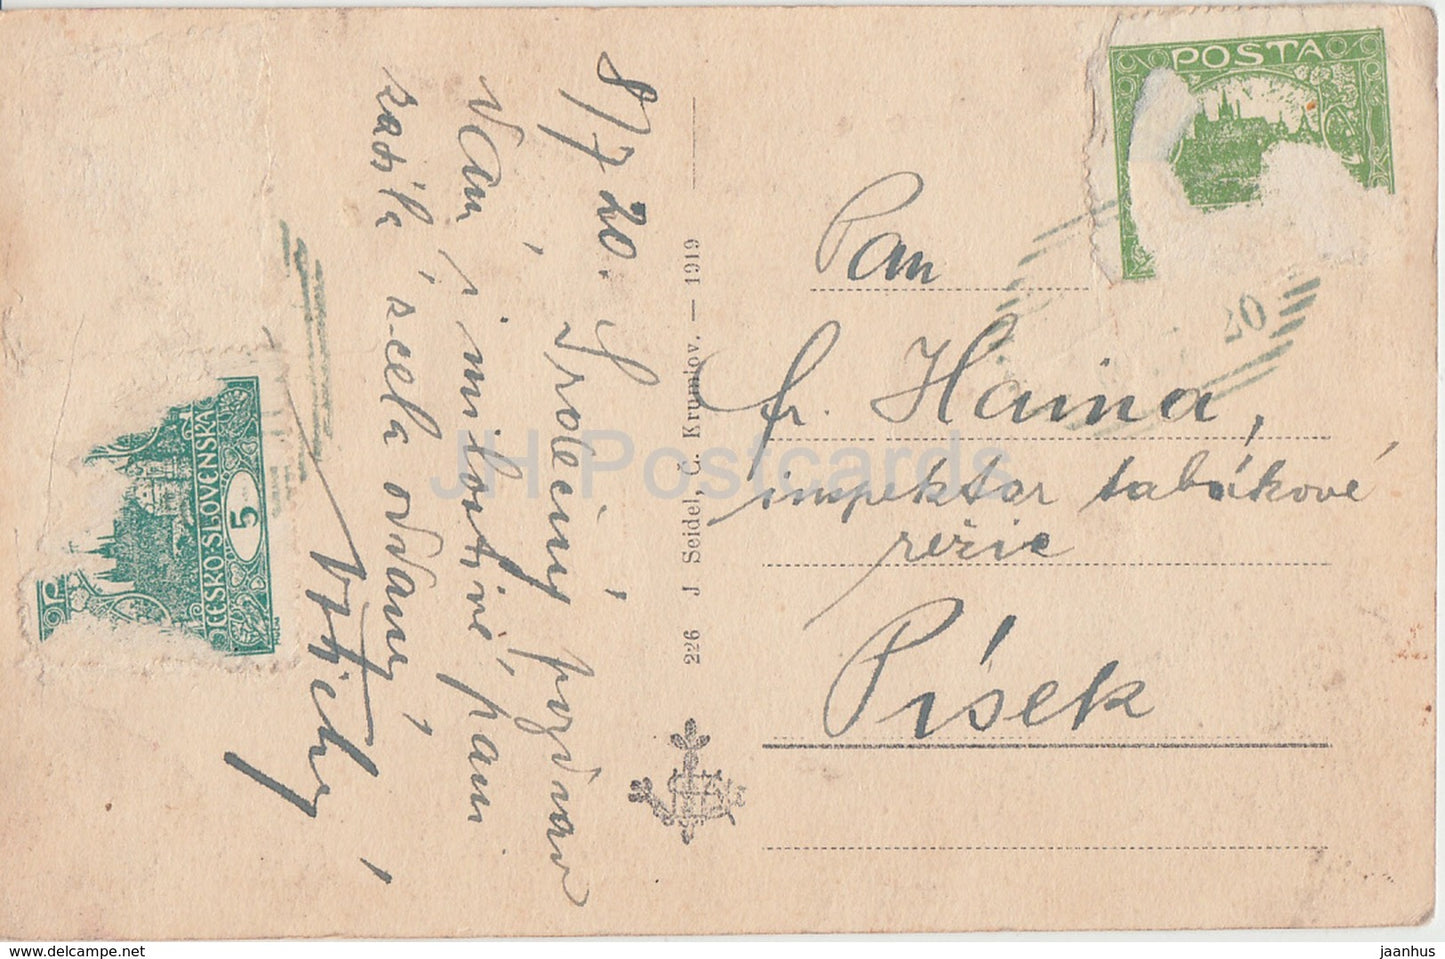 8/7 20.
Srdečný pozdrav
Vám i milostivé paní
zasílá s-cela oddaný
POSTA
ČESKO-SLOVENSKÁ
5
226 J Seidel, Č. Krumlov. — 1919
Pan
fr. Haina,
inspektor tabákové
režie
Písek
20
JH Postcards
www.delcampe.net
jaanhus